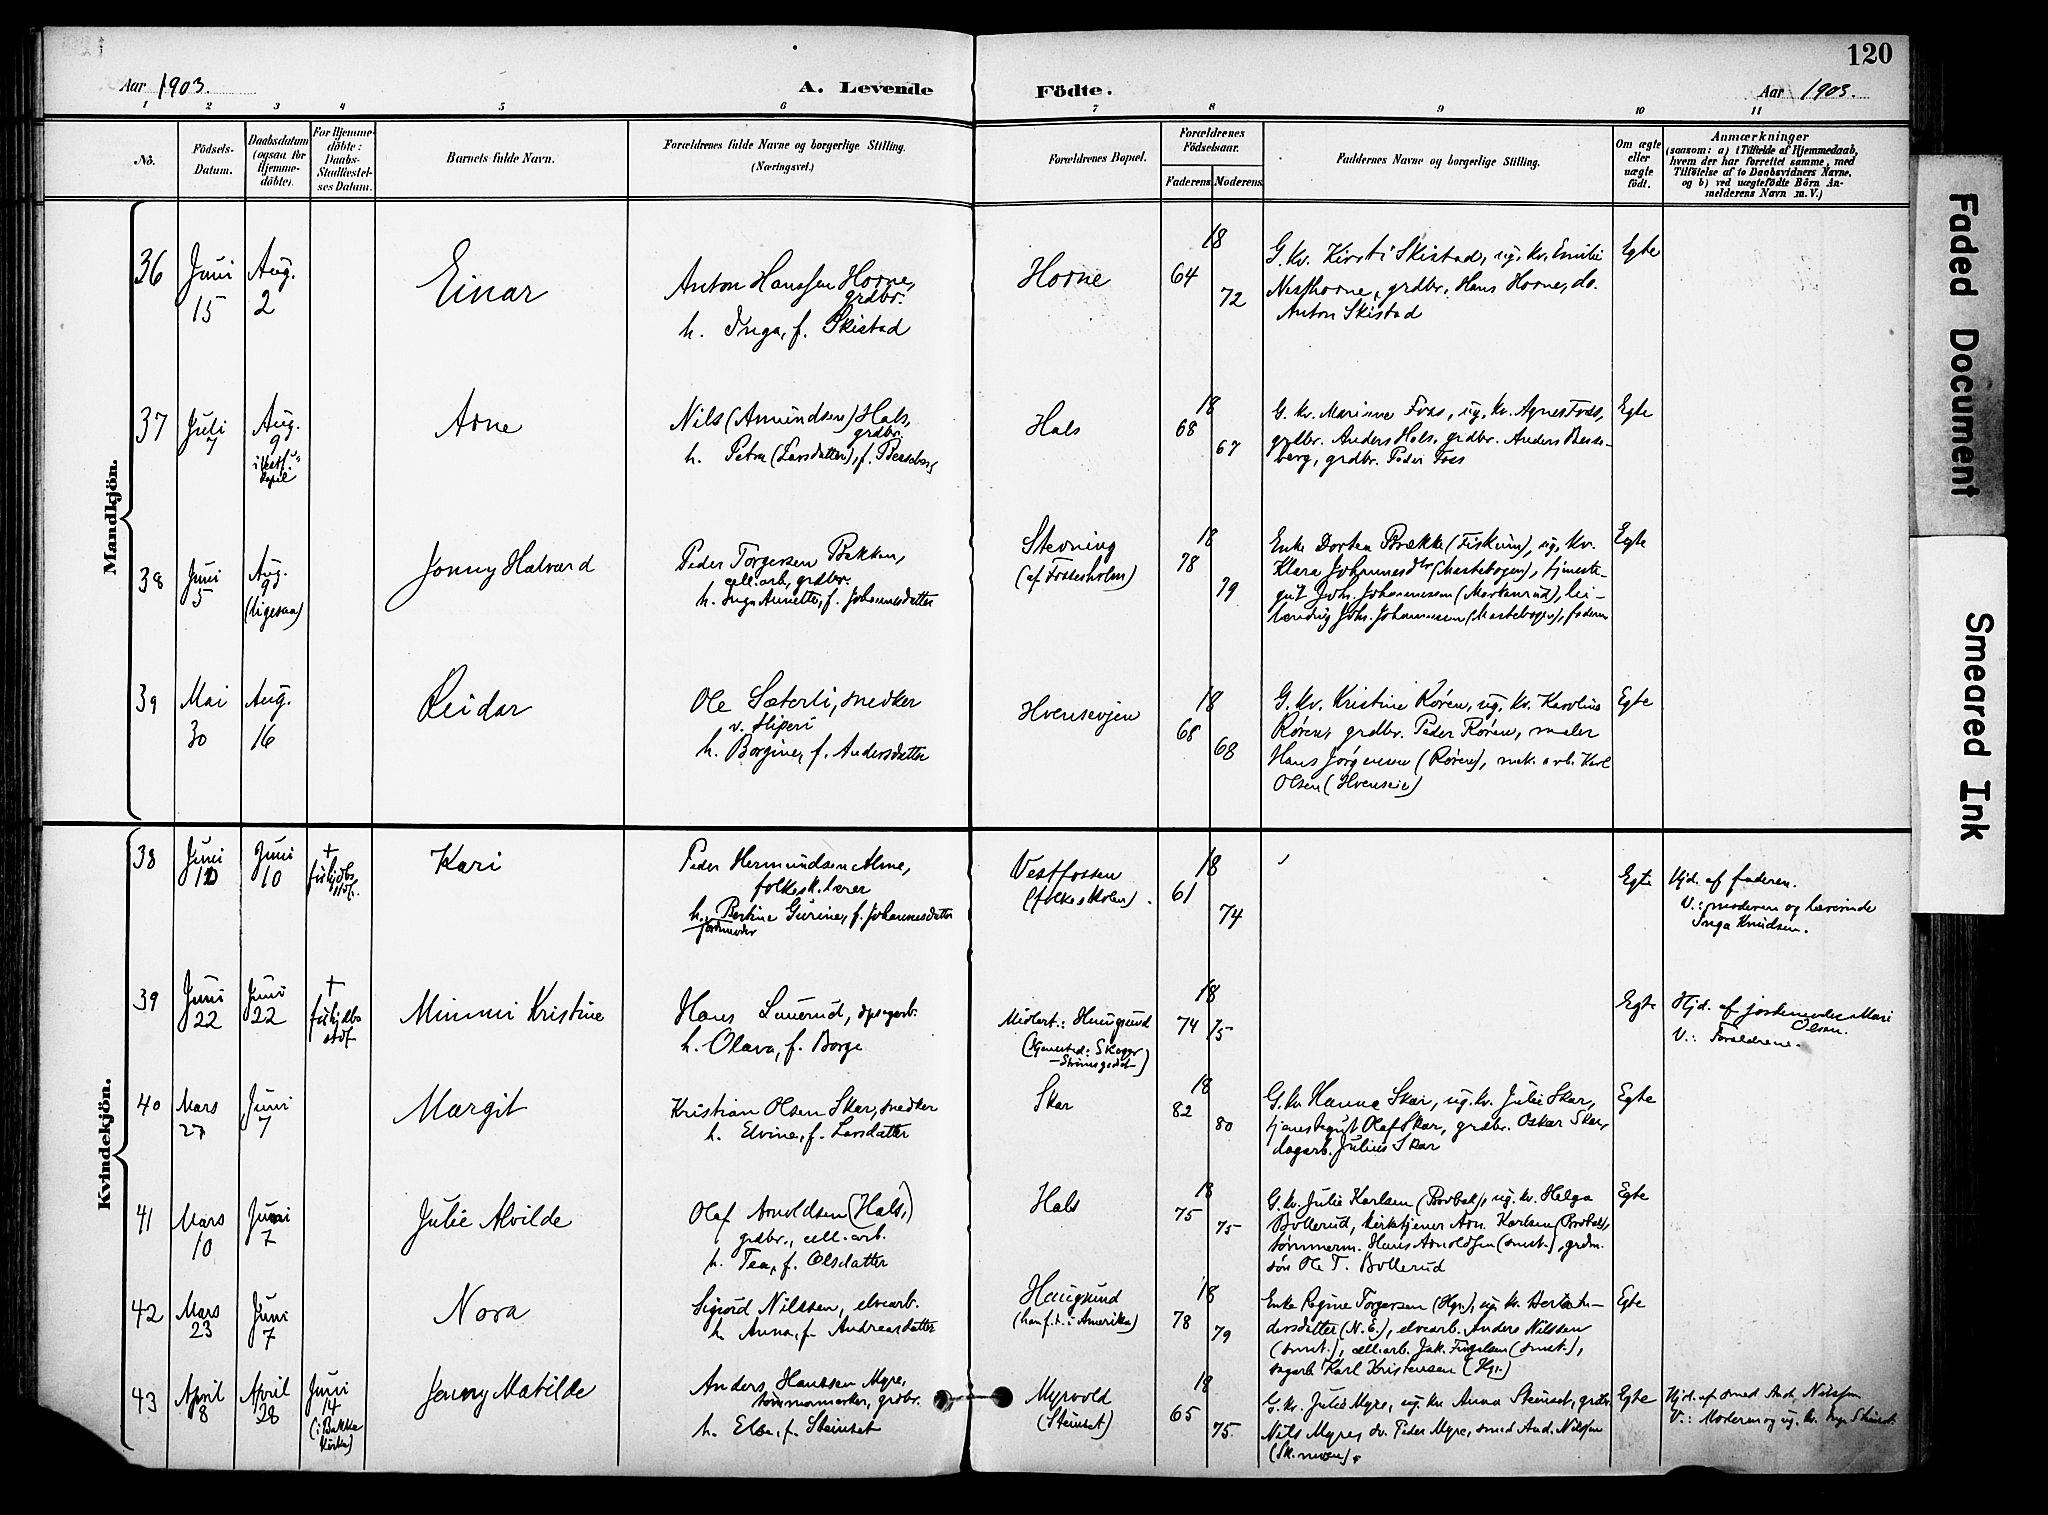 120
Aar 1903.
A. Levende Födte.
Aar 1903.
1 2 3 4 5 6 7 8 9 10 11
No.
Födsels-
Datum.
Daabsdatum
(ogsaa for
Hjemme-
döbte).
For Hjemme-
döbte:
Daabs-
Stadfæstel-
ses Datum.
Barnets fulde Navn.
Forældrenes fulde Navne og borgerlige Stilling.
(Næringsvei.)
Forældrenes Bopæl.
Forældrenes
Födselsaar.
Faderens. Moderens.
Faddernes Navne og borgerlige Stilling.
Om ægte
eller
uægte
födt.
Anmærkninger
(saasom: a) i Tilfælde af Hjemmedaab,
hvem der har forrettet samme, med
Tilføielse af to Daabsvidners Navne,
og b) ved uægtefödte Börn An-
melderens Navn m. V.)
Mandkjön.
36
Juni
15
Aug.
2
Einar
Anton Hanssen Horne,
grdbr.
h. Inga, f. Skistad
Horne
18
64
72
G. kv. Kirsti Skistad, ug. kv. Emilie
Nisthorne, grdbr. Hans Horne, do.
Anton Skistad
Egte
37
Juli
7
Aug.
9
Arne
Nils (Amundsen) Hals,
grdbr.
h. Petra (Larsdatter), f. Besseberg
Hals
18
68
67
G. kv. Marinne Foss, ug. kv. Agnes Foss,
grdbr. Anders Hals, grdbr. Anders Besse-
berg, grdbr. Peder Foss
Egte
38
Juni
5
Aug.
9
(ligesaa)
Jonny Halvard
Peder Torgersen Bakken,
cell.arb., grdbr.
h. Inga Annette, f. Johannesdatter
Stevning
(af Fossesholm)
18
78
79
Enke Dortea Brække (Fiskum), ug. kv.
Klara Johannesdtr (Mastebogen), tjeneste-
gut Joh. Johannessen (Markerud), lei-
lænding Johs. Johannessen (Mastebogen), faderen
Egte
39
Mai
30
Aug.
16
Reidar
Ole Sæterli, snedker
v. sliperi
h. Borgine, f. Andersdatter
Hvensevjen
18
68
68
G. kv. Kristine Røren, ug. kv. Karoline
Røren, grdbr. Peder Røren, maler
Hans Jørgensen (Røren), snk. arb. Karl
Olsen (Hvenseie)
Egte
Kvindekjön.
38
Juni
10
Juni
10
+
før hjdbs
stdf.
Kari
Peder Hermundsen Alme,
folkesk.lærer
h. Bertine Gurine, f. Johannesdatter
jordmoder
Vestfossen
(folkeskolen).
18
61
74
Egte
Hjd. af faderen.
V.: moderen og lærerinde
Inga Knudsen.
39
Juni
22
Juni
22
+
før hjdbs
stdf.
Mimmi Kristine
Hans Lauerud, opsagarb.
h. Olava, f. Borge
Midlert.: Haugsund
(hjemsted: Skoger
18
74
75
Egte
Hjd. af jordemoder Mari
Olsen.
V.: Forældrene.
40
Mars
27
Juni
7
Margit
Kristian Olsen Skar, snedker
h. Elvine, f. Larsdatter
Skar
18
82
80
G. kv. Hanna Skar, ug. kv. Julie Skar,
tjenstegut Olaf Skar, grdbr. Oskar Skar,
dagarb. Julius Skar
Egte
41
Mars
10
Juni
7
Julie Alvilde
Olaf Arnoldsen (Hals,)
grdbr., cell.arb.
h. Tea, f. Olsdatter
Hals
18
75
75
G. kv. Julie Karlsen (Brobak), ug. kv. Helga
Bollerud, kirketjener Arn. Karlsen (Brobak),
tømmerm. Hans Arnoldsen (smst.), grdm.
søn Ole T. Bollerud
Egte
42
Mars
23
Juni
7
Nora
Sigvord Nilssen, elvearb.
h. Anna, f. Andreasdatter
Haugsund
(han f. t. i Amerika)
18
78
79
Enke Regine Torgersen (Hgs.), ug. kv. Berta An-
dersdatter (N. E.), elvearb. Anders Nilssen
(smst.), cell.arb. Jak. Fingelsen (smst.),
sagarb. Karl Kristensen (Hgs.)
Egte
43
April
8
April
28
Juni
14
(i Bakke
kirke)
Jenny Matilde
Anders Hanssen Myre,
tømmermerker, grdbr.
h. Else, f. Steinset
Myrvold
(Steinset)
18
65
75
G. kv. Julie Myre, ug. kv. Anna Steinset, grdbr.
Nils Myre, sv. Peder Myre, smed And. Nilssen
(Sk.moen).
Egte
Hjd. af smed And. Nilssen
V.: Moderen og ug. kv. Inga Steinset
Faded Document
Smeared Ink